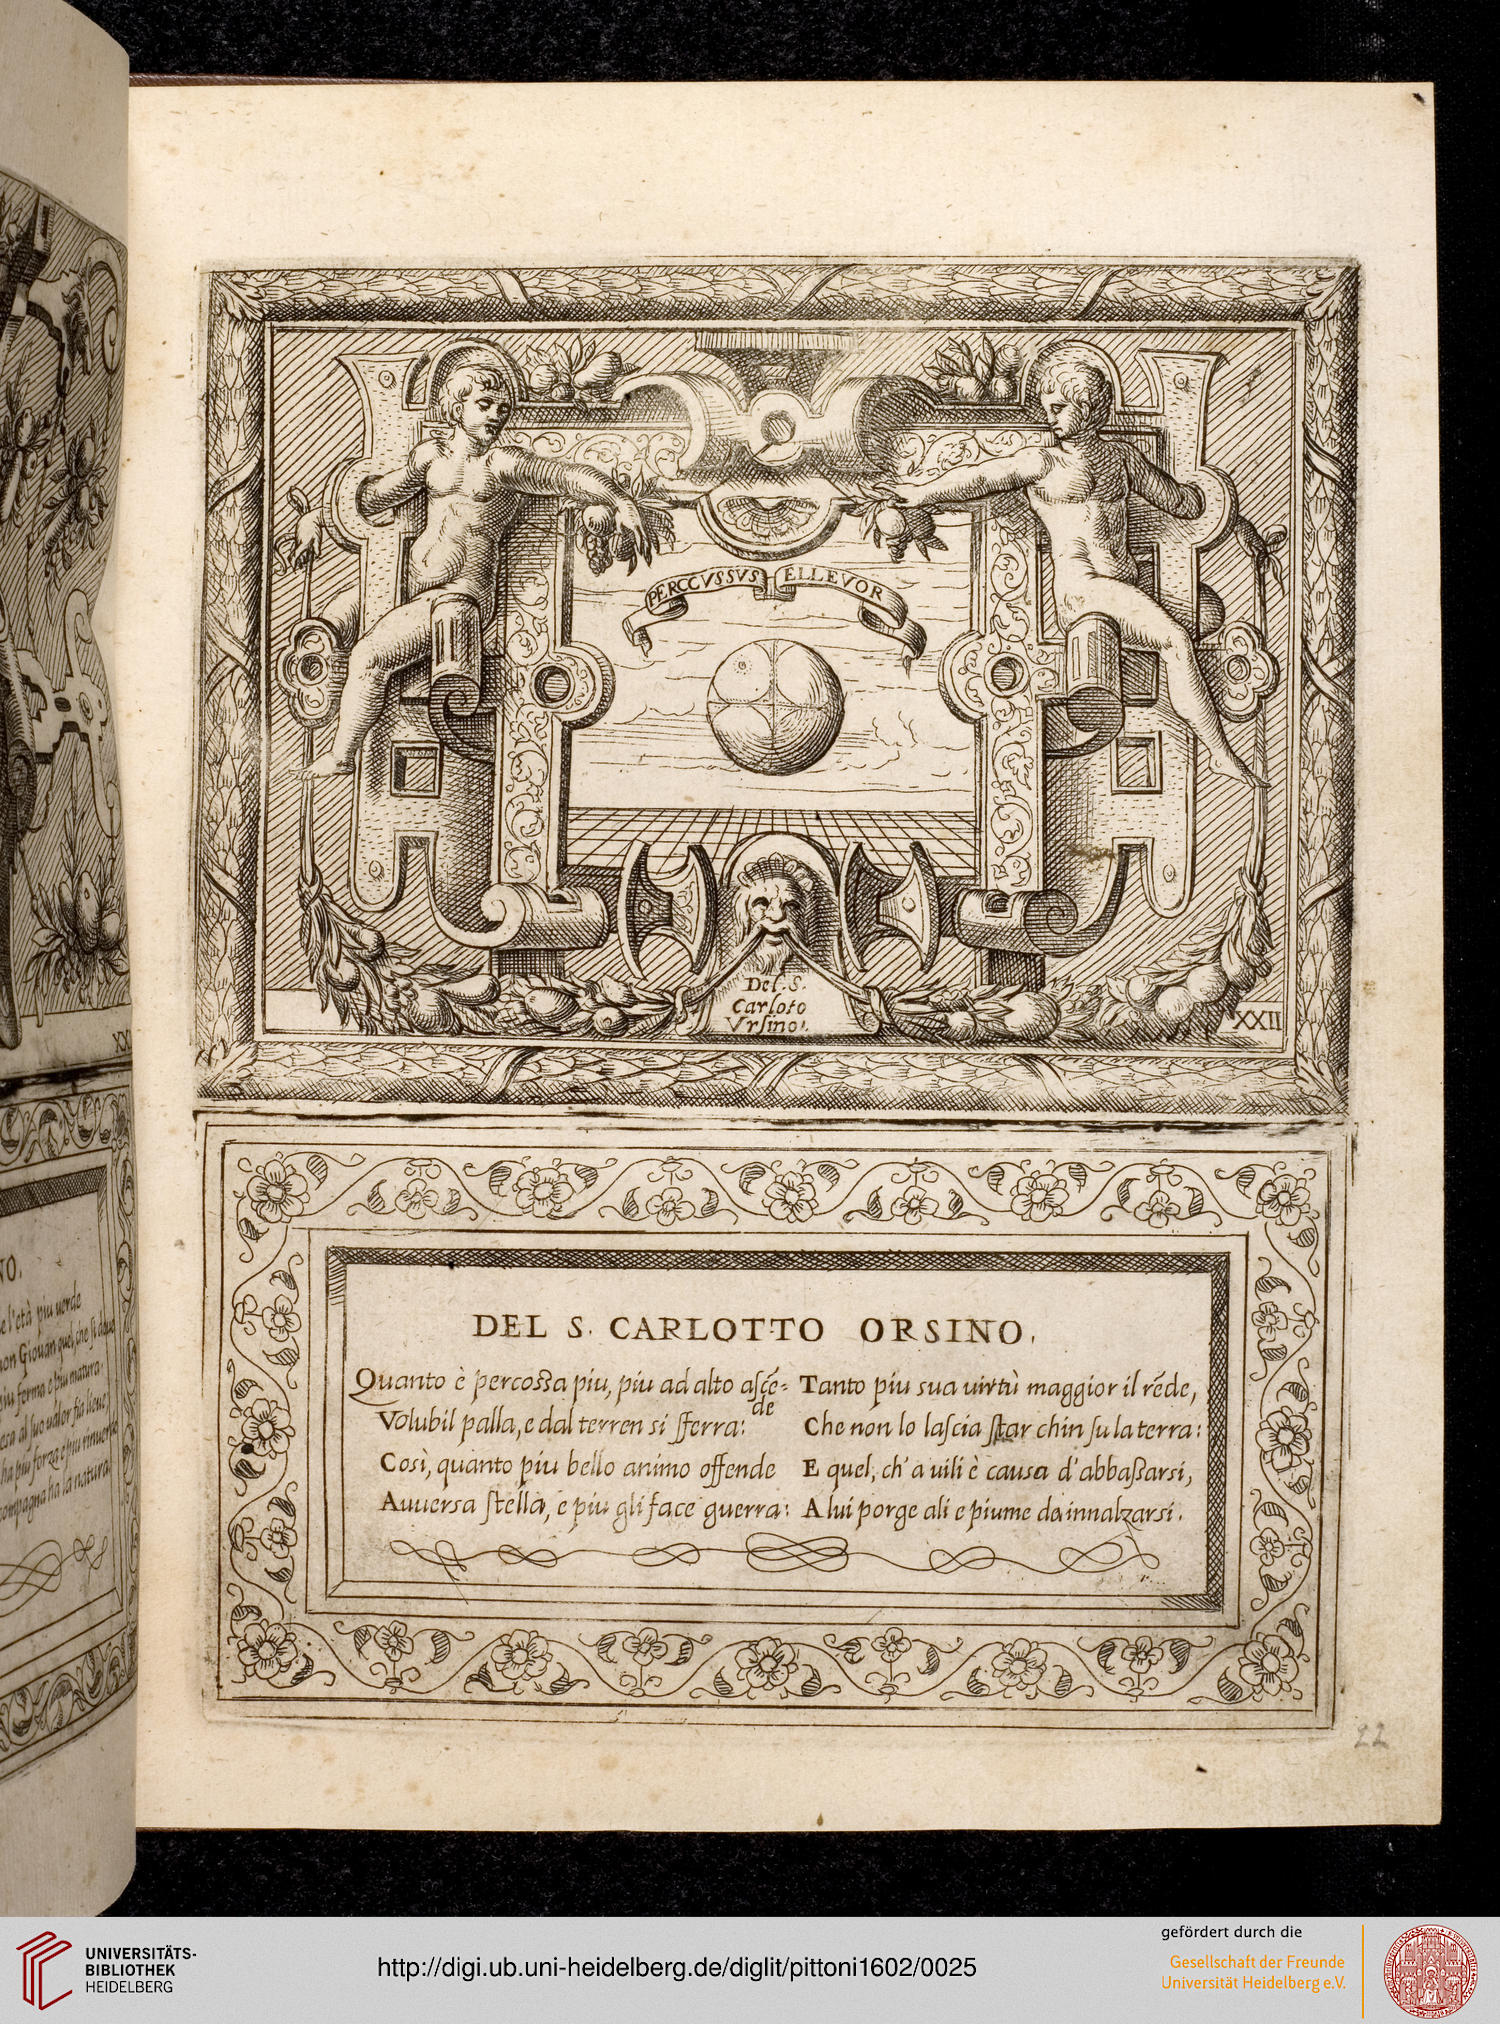 PERCCVSSVS ELLEVOR
Del. S.
Carloto
Vrsino.
XXII
DEL S. CARLOTTO ORSINO.
Quanto è percossa piu, piu ad alto ascẽ=
de
Volubil palla, e dal terren si sferra:
Così, quanto piu bello animo offende
Auuersa stella, e piu gli face guerra:
Tanto piu sua uirtù maggior il rẽde,
Che non lo lascia star chin su la terra:
E quel, ch' a uili è causa d' abbaßarsi,
A lui porge ali e piume da innalzarsi.
22
XX
NO.
e l'età piu uerde
on Giouan quel, che si
piu ferma e piu matura.
era al suo ualor
ha piu forza e piu
compagna ha la natura
UNIVERSITÄTS-
BIBLIOTHEK
HEIDELBERG
http://digi.ub.uni-heidelberg.de/diglit/pittoni1602/0025
gefördert durch die
Gesellschaft der Freunde
Universität Heidelberg e.V.